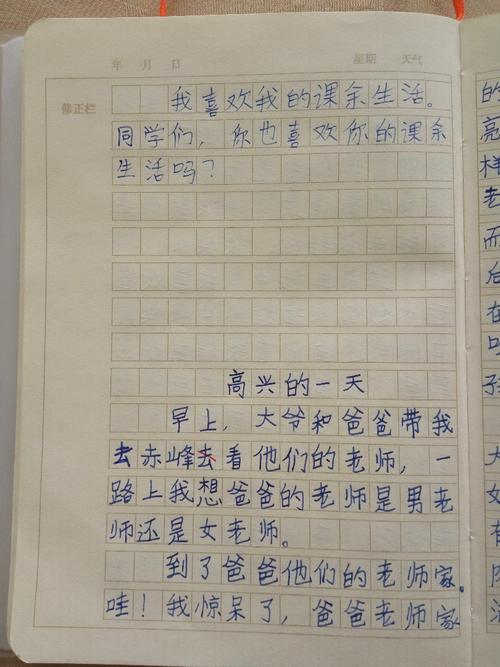 年 月 日 星期 天气
修正栏
我喜欢我的课余生活。
同学们，你也喜欢你的课余
生活吗？
高兴的一天
早上，大爷和爸爸带我
去赤峰去看他们的老师，一
路上我想爸爸的老师是男老
师还是女老师。
到了爸爸他们的老师家。
哇！我惊呆了，爸爸老师家
的
亮
样
老
而
后
在
口
子
大
女
有